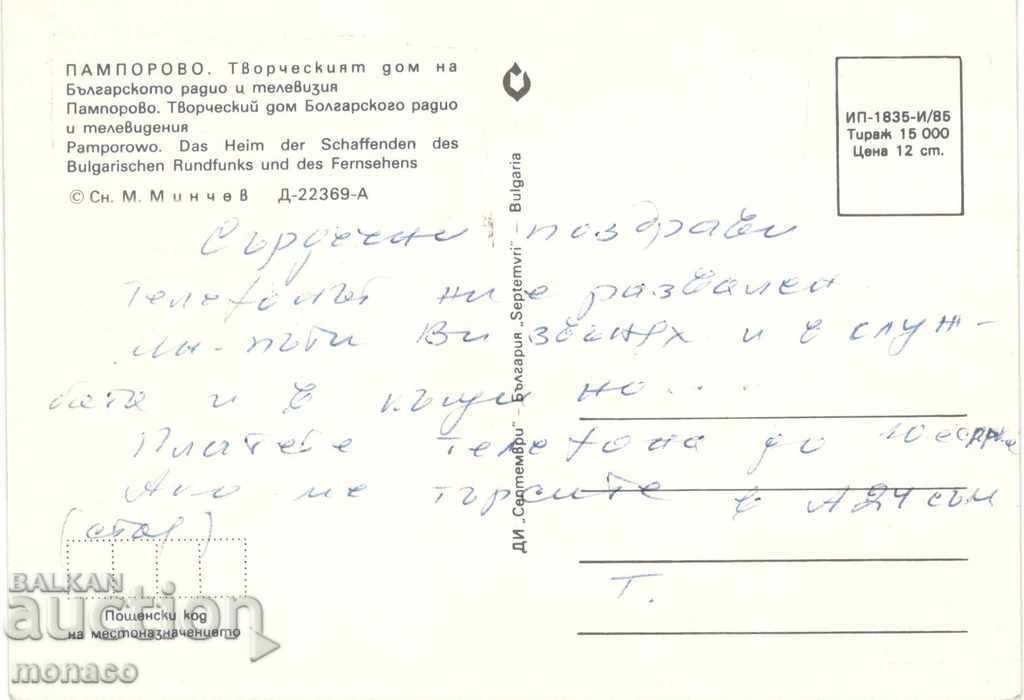 ПАМПОРОВО. Творческият дом на
Българското радио и телевизия
Пампорово. Творческий дом Болгарского радио
и телевидения
Pamporowo. Das Heim der Schaffenden des
Bulgarischen Rundfunks und des Fernsehens
© Сн. М. Минчев Д-22369-А
ИП-1835-И/85
Тираж 15 000
Цена 12 ст.
ДИ „Септември" – България „Septemvri" – Bulgaria
Сърдечни поздрави
Телефонът ни е развален
пъти Ви звънях и в служ-
бата и в къщи но...
Платете телефона до 10
Ако ме търсите в съм
(стар)
Т.
Пощенски код
на местоназначението
BALKAN
auction
monaco